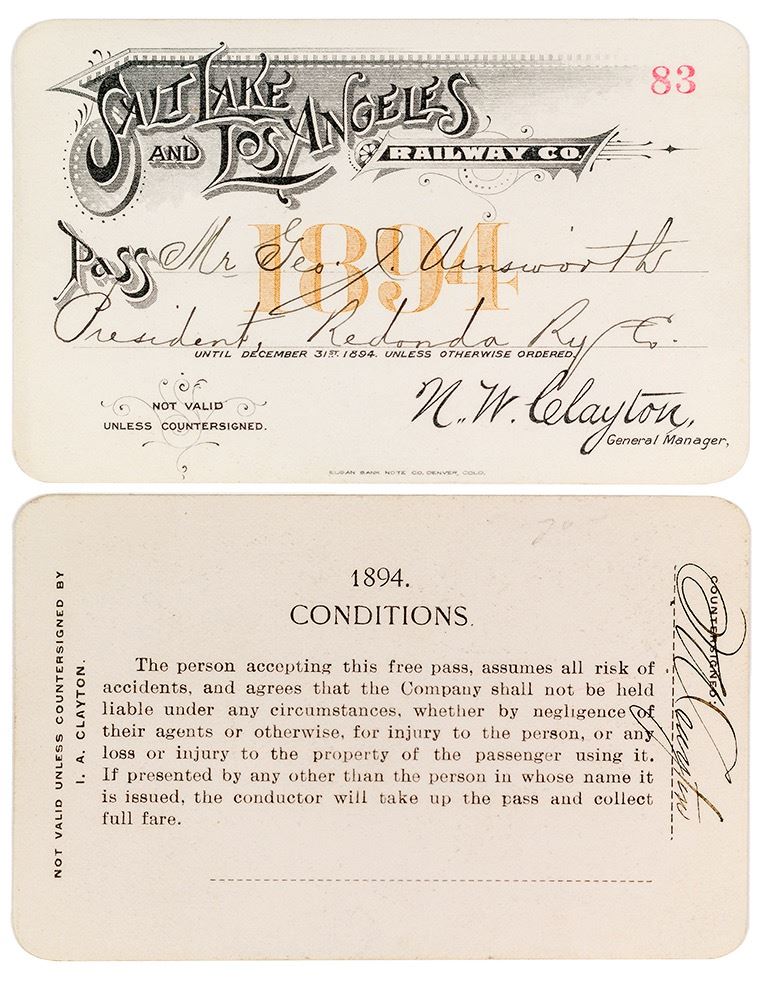 SALT LAKE
AND LOS ANGELES
RAILWAY CO.
83
1894
Pass Mr Geo. J. Ainsworth
President, Redondo Ry Co.
UNTIL DECEMBER 31ST. 1894. UNLESS OTHERWISE ORDERED.
NOT VALID
UNLESS COUNTERSIGNED.
N. W. Clayton,
General Manager,
BANK NOTE CO. DENVER, COLO.
NOT VALID UNLESS COUNTERSIGNED BY
I. A. CLAYTON.
1894.
CONDITIONS.
The person accepting this free pass, assumes all risk of
accidents, and agrees that the Company shall not be held
liable under any circumstances, whether by negligence of
their agents or otherwise, for injury to the person, or any
loss or injury to the property of the passenger using it.
If presented by any other than the person in whose name it
is issued, the conductor will take up the pass and collect
full fare.
COUNTERSIGNED.